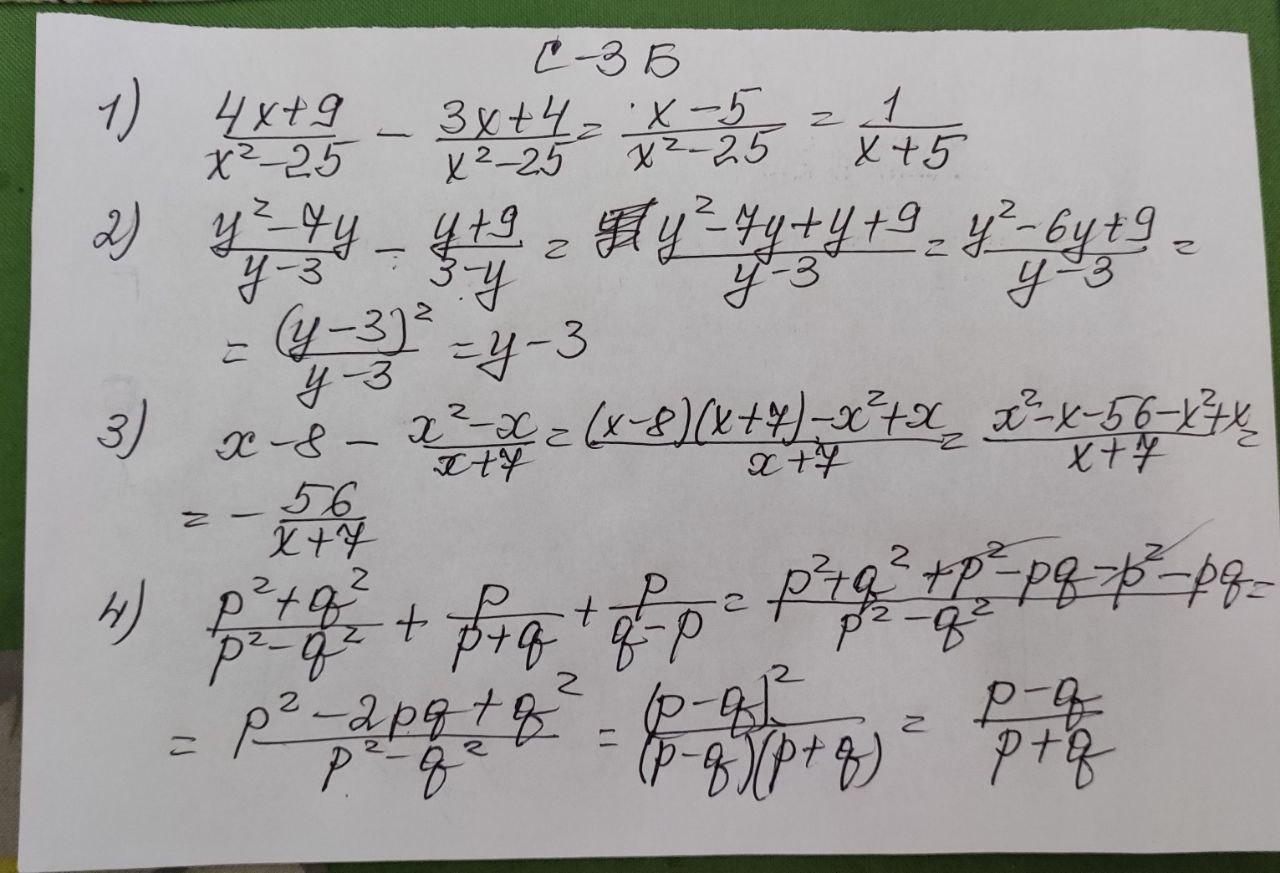 С-3 Б
1) (4x+9)/(x²-25) - (3x+4)/(x²-25) = (x-5)/(x²-25) = 1/(x+5)
2) (y²-7y)/(y-3) - (y+9)/(3-y) = (y²-7y+y+9)/(y-3) = (y²-6y+9)/(y-3) =
= (y-3)²/(y-3) = y-3
3) x-8 - (x²-x)/(x+7) = ((x-8)(x+7)-x²+x)/(x+7) = (x²-x-56-x²+x)/(x+7) =
= - 56/(x+7)
4) (p²+q²)/(p²-q²) + p/(p+q) + p/(q-p) = (p²+q²+p²-pq-p²-pq)/(p²-q²) =
= (p²-2pq+q²)/(p²-q²) = (p-q)²/((p-q)(p+q)) = (p-q)/(p+q)